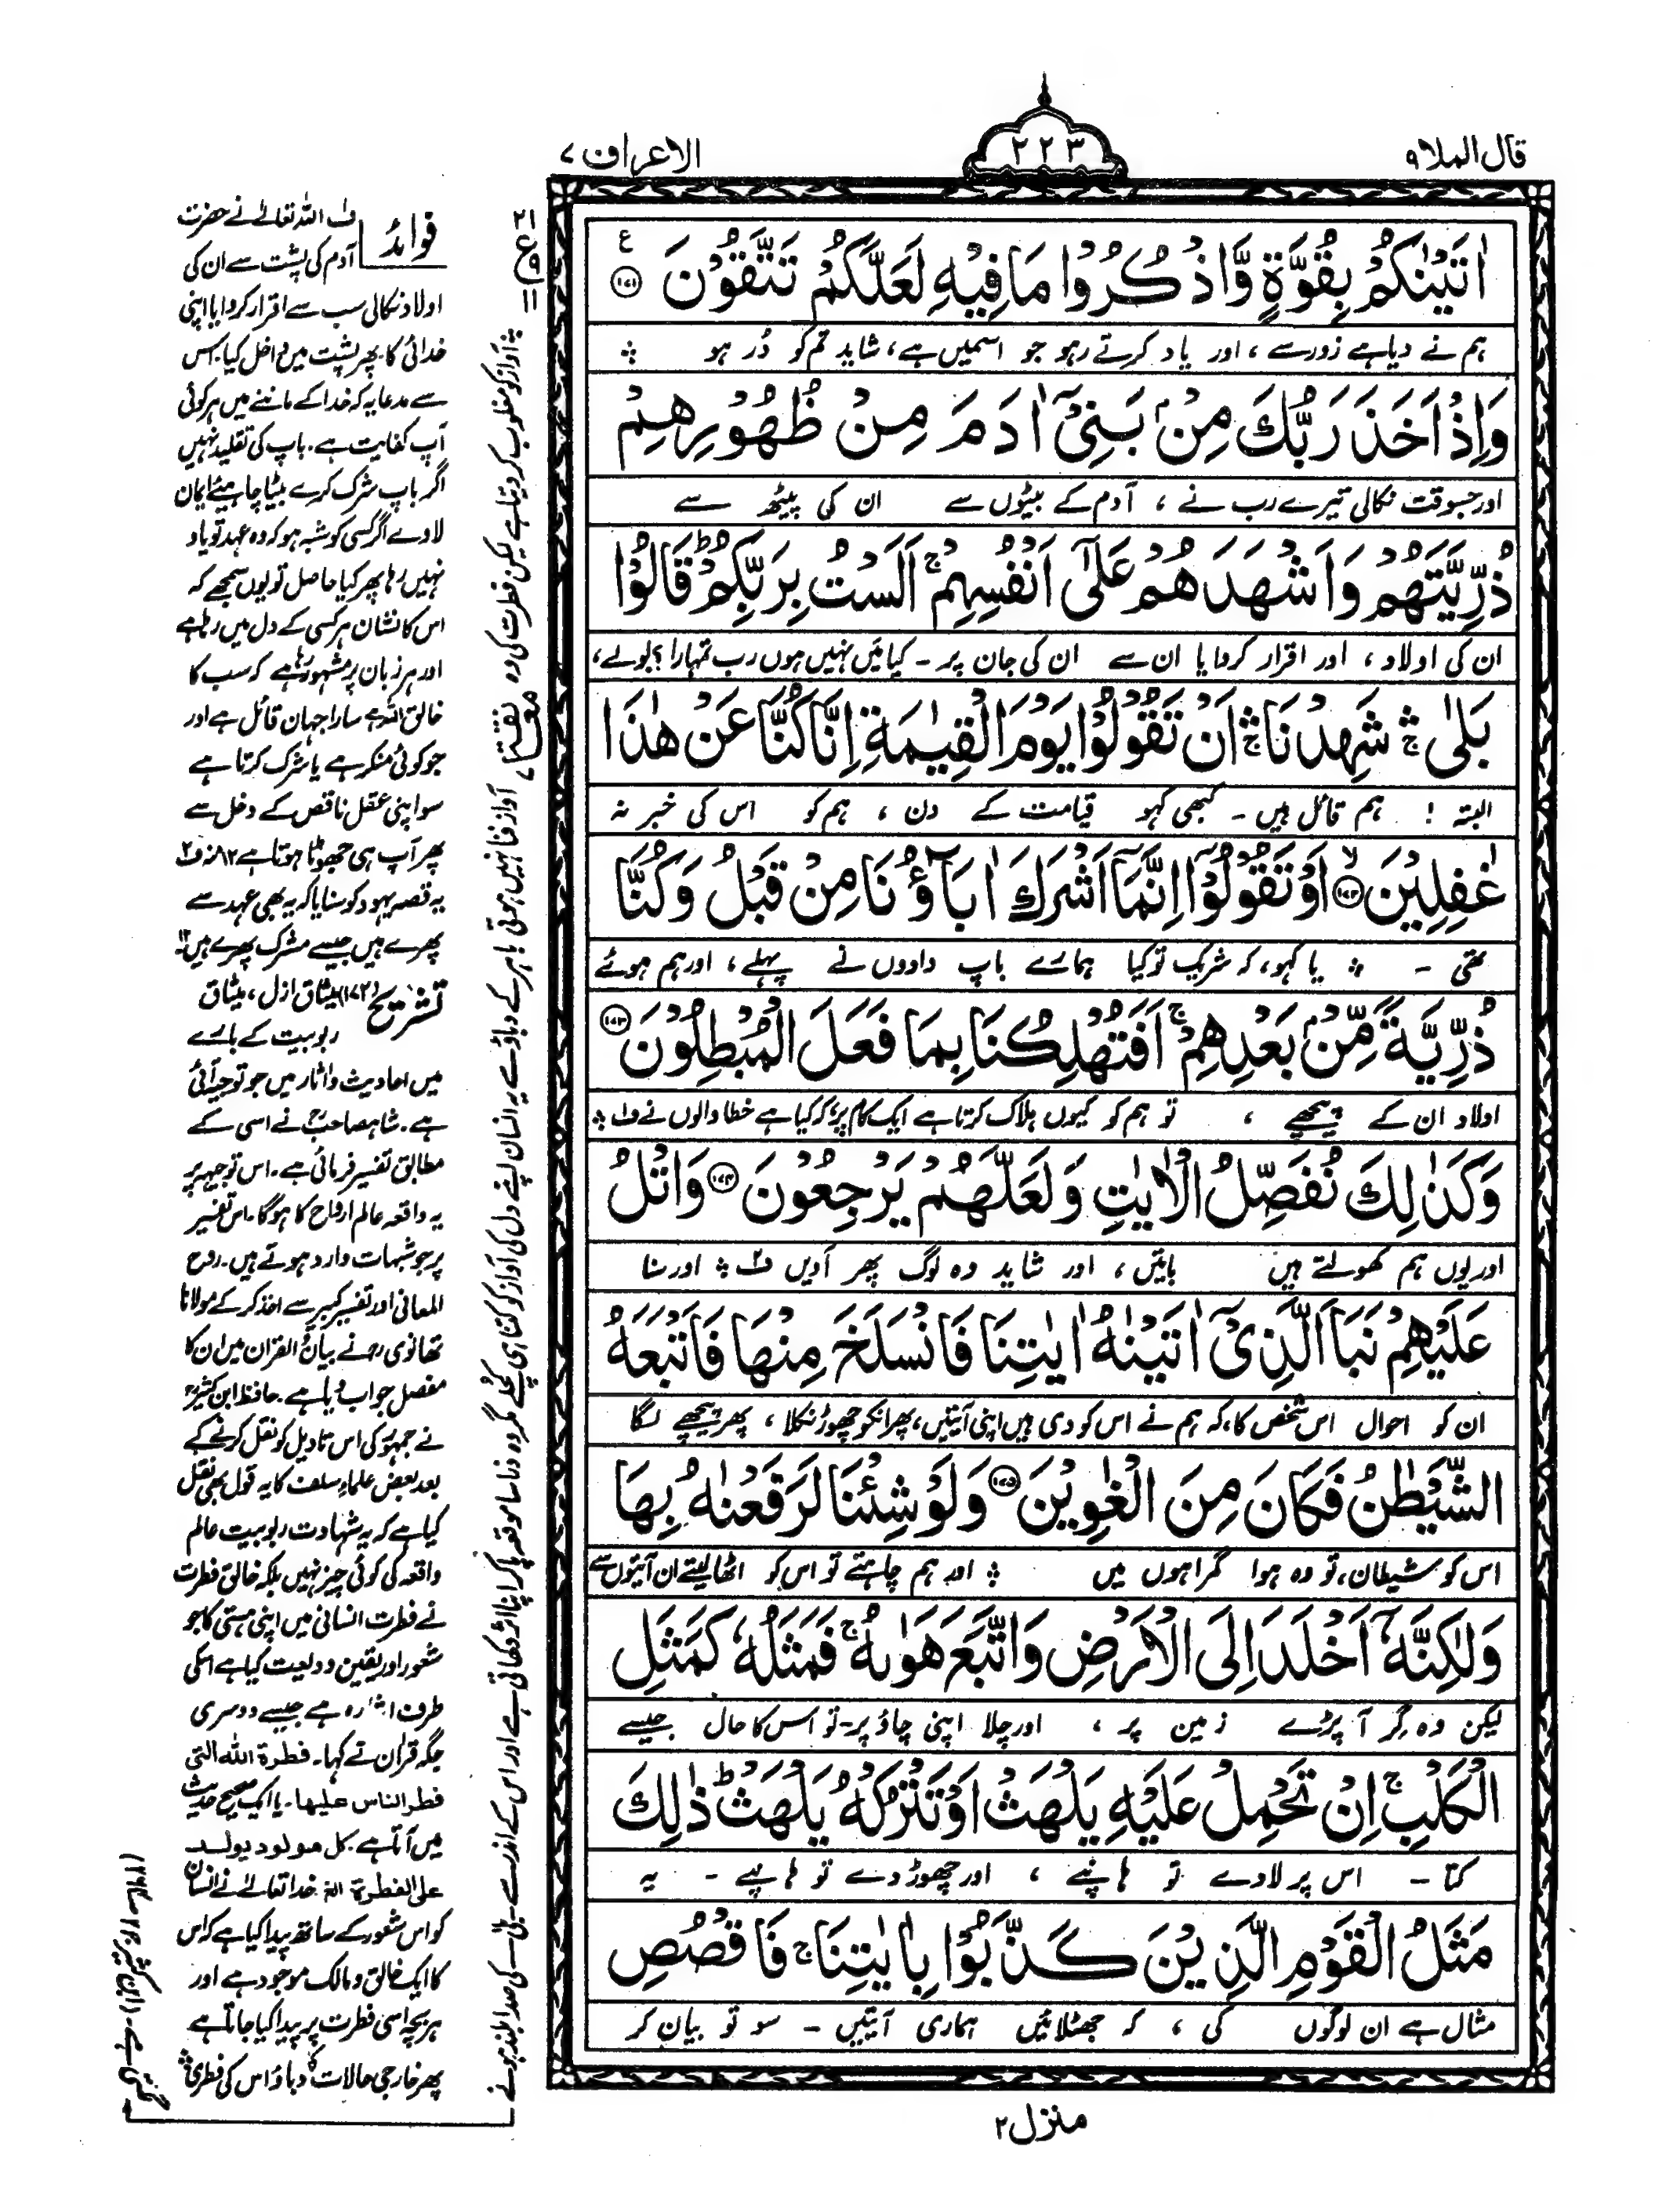 قال الملا ۹
۲۲۳
الاعراف ۷
اٰتَيْنٰكُمْ بِقُوَّةٍ وَّاذْكُرُوْا مَا فِيْهِ لَعَلَّكُمْ تَتَّقُوْنَ ۝۱۷۱ ع
ہم نے دیا ہے زور سے ، اور یاد کرتے رہو جو اسمیں ہے ، شاید تم کو ڈر ہو ؞
وَاِذْ اَخَذَ رَبُّكَ مِنْۢ بَنِيْٓ اٰدَمَ مِنْ ظُهُوْرِهِمْ
اور جسوقت نکالی تیرے رب نے ، آدم کے بیٹوں سے ان کی پیٹھ سے
ذُرِّيَّتَهُمْ وَاَشْهَدَهُمْ عَلٰٓى اَنْفُسِهِمْ ۚ اَلَسْتُ بِرَبِّكُمْ ؕ قَالُوْا
ان کی اولاد ، اور اقرار کروایا ان سے ان کی جان پر ۔ کیا میں نہیں ہوں رب تمہارا ؟ بولے ،
بَلٰى ۛۚ شَهِدْنَا ۛۚ اَنْ تَقُوْلُوْا يَوْمَ الْقِيٰمَةِ اِنَّا كُنَّا عَنْ هٰذَا
البتہ ! ہم قائل ہیں ۔ کبھی کہو قیامت کے دن ، ہم کو اس کی خبر نہ
غٰفِلِيْنَ ۝۱۷۲ۙ اَوْ تَقُوْلُوْٓا اِنَّمَآ اَشْرَكَ اٰبَآؤُنَا مِنْ قَبْلُ وَكُنَّا
تھی ۔ ؞ یا کہو ، کہ شریک تو کیا ہمارے باپ دادوں نے پہلے ، اور ہم ہوئے
ذُرِّيَّةً مِّنْۢ بَعْدِهِمْ ۚ اَفَتُهْلِكُنَا بِمَا فَعَلَ الْمُبْطِلُوْنَ ۝۱۷۳
اولاد ان کے پیچھے ، تو ہم کو کیوں ہلاک کرتا ہے ایک کام پر ، کہ کیا ہے خطا والوں نے ف۱ ؞
وَكَذٰلِكَ نُفَصِّلُ الْاٰيٰتِ وَلَعَلَّهُمْ يَرْجِعُوْنَ ۝۱۷۴ وَاتْلُ
اور یوں ہم کھولتے ہیں باتیں ، اور شاید وہ لوگ پھر آویں ف۲ ؞ اور سنا
عَلَيْهِمْ نَبَاَ الَّذِيْٓ اٰتَيْنٰهُ اٰيٰتِنَا فَانْسَلَخَ مِنْهَا فَاَتْبَعَهُ
ان کو احوال اس شخص کا ، کہ ہم نے اس کو دی ہیں اپنی آیتیں ، پھر انکو چھوڑ نکلا ، پھر پیچھے لگا
الشَّيْطٰنُ فَكَانَ مِنَ الْغٰوِيْنَ ۝۱۷۵ وَلَوْ شِئْنَا لَرَفَعْنٰهُ بِهَا
اس کو شیطان ، تو وہ ہوا گمراہوں میں ؞ اور ہم چاہتے تو اس کو اٹھا لیتے ان آیتوں سے
وَلٰكِنَّهٗٓ اَخْلَدَ اِلَى الْاَرْضِ وَاتَّبَعَ هَوٰىهُ ۚ فَمَثَلُهٗ كَمَثَلِ
لیکن وہ گر آ پڑے زمین پر ، اور چلا اپنی چاؤ پر ۔ تو اس کا حال جیسے
الْكَلْبِ ۚ اِنْ تَحْمِلْ عَلَيْهِ يَلْهَثْ اَوْ تَتْرُكْهُ يَلْهَثْ ؕ ذٰلِكَ
کتا ۔ اس پر لادے تو ہانپے ، اور چھوڑ دے تو ہانپے ۔ یہ
مَثَلُ الْقَوْمِ الَّذِيْنَ كَذَّبُوْا بِاٰيٰتِنَا ۚ فَاقْصُصِ
مثال ہے ان لوگوں کی ، کہ جھٹلائیں ہماری آیتیں ۔ سو تو بیان کر
منزل ۲
فوائد
ف۱ اللہ تعالےٰ نے حضرت
آدم کی پشت سے ان کی
اولاد نکالی سب سے اقرار کروایا اپنی
خدائی کا پھر پشت میں داخل کیا۔ اس
سے مدعا یہ کہ خدا کے ماننے میں ہر کوئی
آپ کفایت ہے۔ باپ کی تقلید نہیں
اگر باپ شرک کرے بیٹا چاہیئے ایمان
لاوے اگر کسی کو شبہ ہو کہ وہ عہد تو یاد
نہیں رہا پھر کیا حاصل تو یوں سمجھے کہ
اس کا نشان ہر کسی کے دل میں رہا ہے
اور ہر زبان پر مشہور رہا ہے کہ سب کا
خالق اللہ ہے سارا جہان قائل ہے اور
جو کوئی منکر ہے یا شرک کرتا ہے
سو اپنی عقل ناقص کے دخل سے
پھر آپ ہی جھوٹا ہوتا ہے ۱۲ منہ ف۲
یہ قصہ یہود کو سنایا کہ یہ بھی عہد سے
پھرے ہیں جیسے مشرک پھرے ہیں ۱۲
تشریح (۱۷۲) میثاق ازل ، میثاق
ربوبیت کے بارے
میں احادیث و آثار میں جو توجیہ آئی
ہے۔ شاہصاحبؒ نے اسی کے
مطابق تفسیر فرمائی ہے۔ اس توجیہہ پر
یہ واقعہ عالم ارواح کا ہوگا۔ اس تفسیر
پر جو شبہات وارد ہوتے ہیں۔ روح
المعانی اور تفسیر کبیر سے اخذ کر کے مولانا
تھانوی رحؒ نے بیان القرآن میں ان کا
مفصل جواب دیا ہے۔ حافظ ابن کثیرؒ
نے جمہور کی اس تاویل کو نقل کرنے کے
بعد بعض علماء سلف کا یہ قول بھی نقل
کیا ہے کہ یہ شہادت ربوبیت عالم
واقعہ کی کوئی چیز نہیں بلکہ خالق فطرت
نے فطرت انسانی میں اپنی ہستی کا جو
شعور اور یقین ودیعت کیا ہے اسکی
طرف اشارہ ہے جیسے دوسری
جگہ قرآن نے کہا۔ فطرۃ اللہ التی
فطر الناس علیھا۔ یا ایک صحیح حدیث
میں آتا ہے۔ کل مولود یولد
علی الفطرۃ الخ خدا تعالےٰ نے انسان
کو اس شعور کے ساتھ پیدا کیا ہے کہ اس
کا ایک خالق و مالک موجود ہے اور
ہر بچہ اسی فطرت پر پیدا کیا جاتا ہے
پھر خارجی حالات کا دباؤ اس کی فطری ؞
؞ آواز کو مغلوب کر دیتا ہے لیکن فطرت کی وہ آواز فنا نہیں ہوتی باہر کے دباؤ سے یہ انسان اپنے دل کی آواز کو کتنا ہی کچلے مگر وہ ذرا سا موقعہ پا کر اپنا اثر دکھاتی ہے اور اس کے اندر سے بلٰی کی صدا بلند ہونے
لگتی ہے۔ (ابن کثیر ج۲ ص۲۶۴)